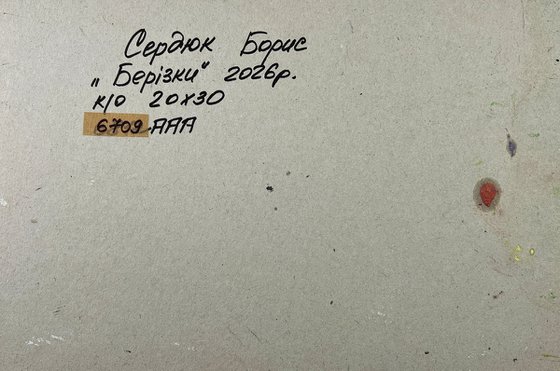 Сердюк Борис
„Берізки" 2026р.
к/о 20х30
6709.ААА